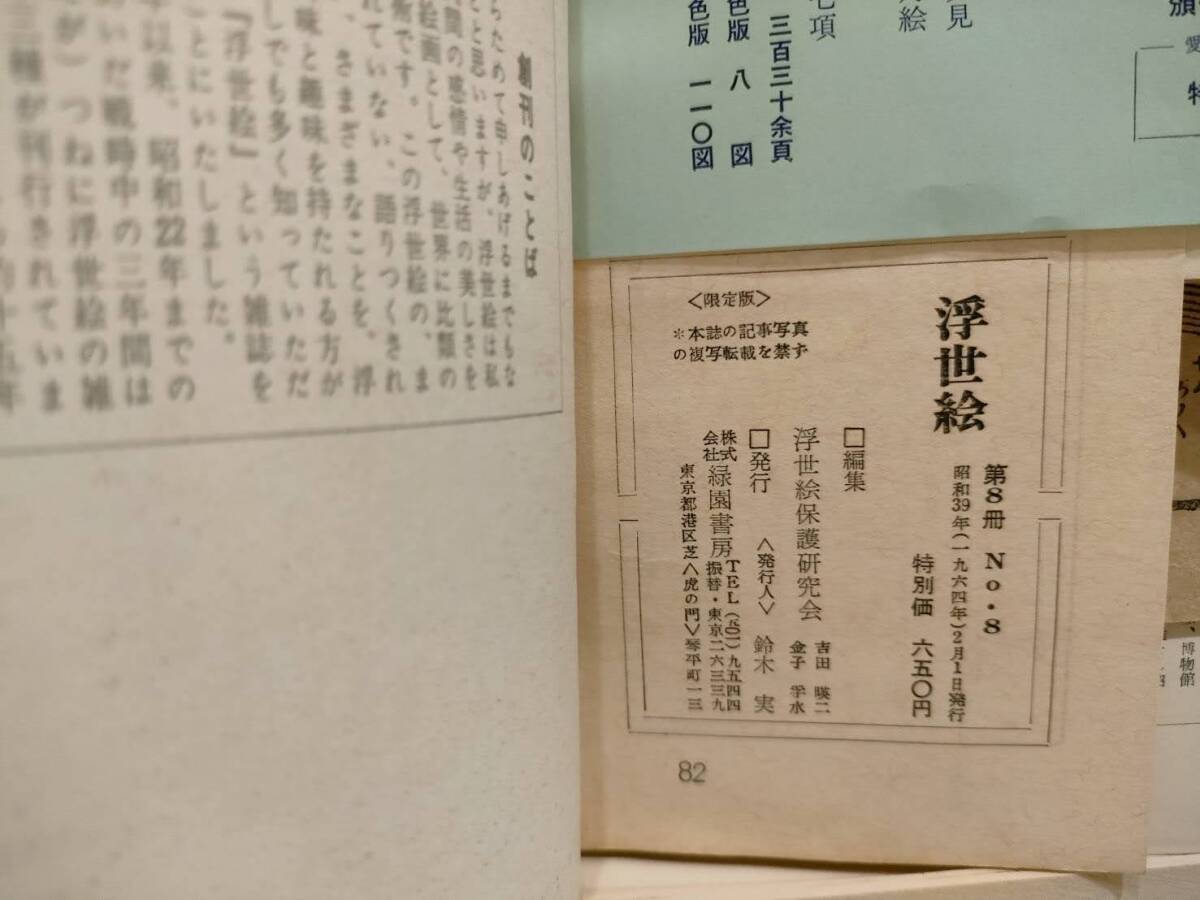 創刊のことば
らためて申しあげるまでもな
とと思いますが、浮世絵は私
間の感情や生活の美しさを
絵画として、世界に比類の
術です。この浮世絵の、ま
れていない、語りつくされ
、さまざまなことを、浮
味と趣味を持たれる方が
しでも多く知っていただ
『浮世絵』という雑誌を
ことにいたしました。
年以来、昭和22年までの
いだ戦時中の三年間は
が）つねに浮世絵の雑
三種が刊行されていま
頒
愛
特
見
絵
七項
三百三十余頁
色版 八図
色版 一一〇図
浮世絵
第8冊 No.8
昭和39年(一九六四年)2月1日発行
特別価 六五〇円
□編集
浮世絵保護研究会
吉田 暎二
金子 孚水
□発行
〈発行人〉 鈴木 実
株式会社 緑園書房
TEL(五〇一)九五四四
振替・東京二六三三九
東京都港区芝〈虎の門〉琴平町一三
〈限定版〉
＊本誌の記事写真
の複写転載を禁ず
82
博物館